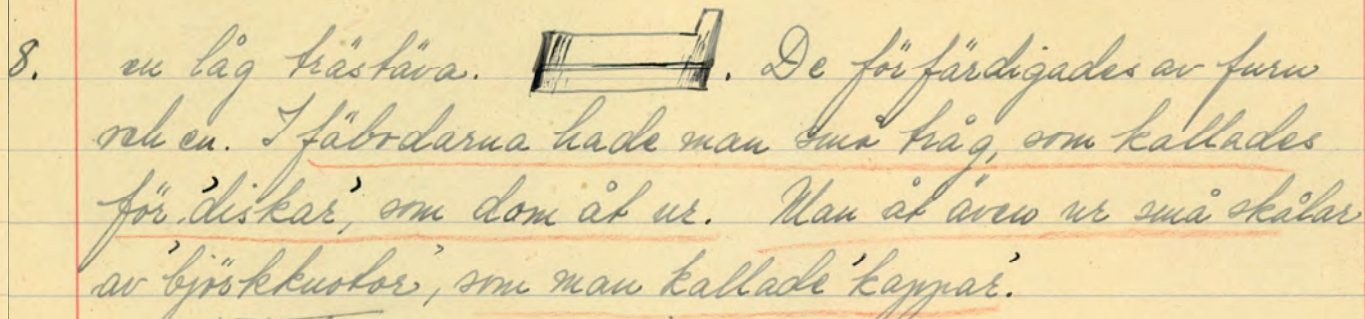 8. en låg trästäva. . De förfärdigades av furu
och en. I fäbodarna hade man små tråg, som kallades
för 'diskar', som dom åt ur. Man åt även ur små skålar
av 'björkknotor', som man kallade 'kappar'.